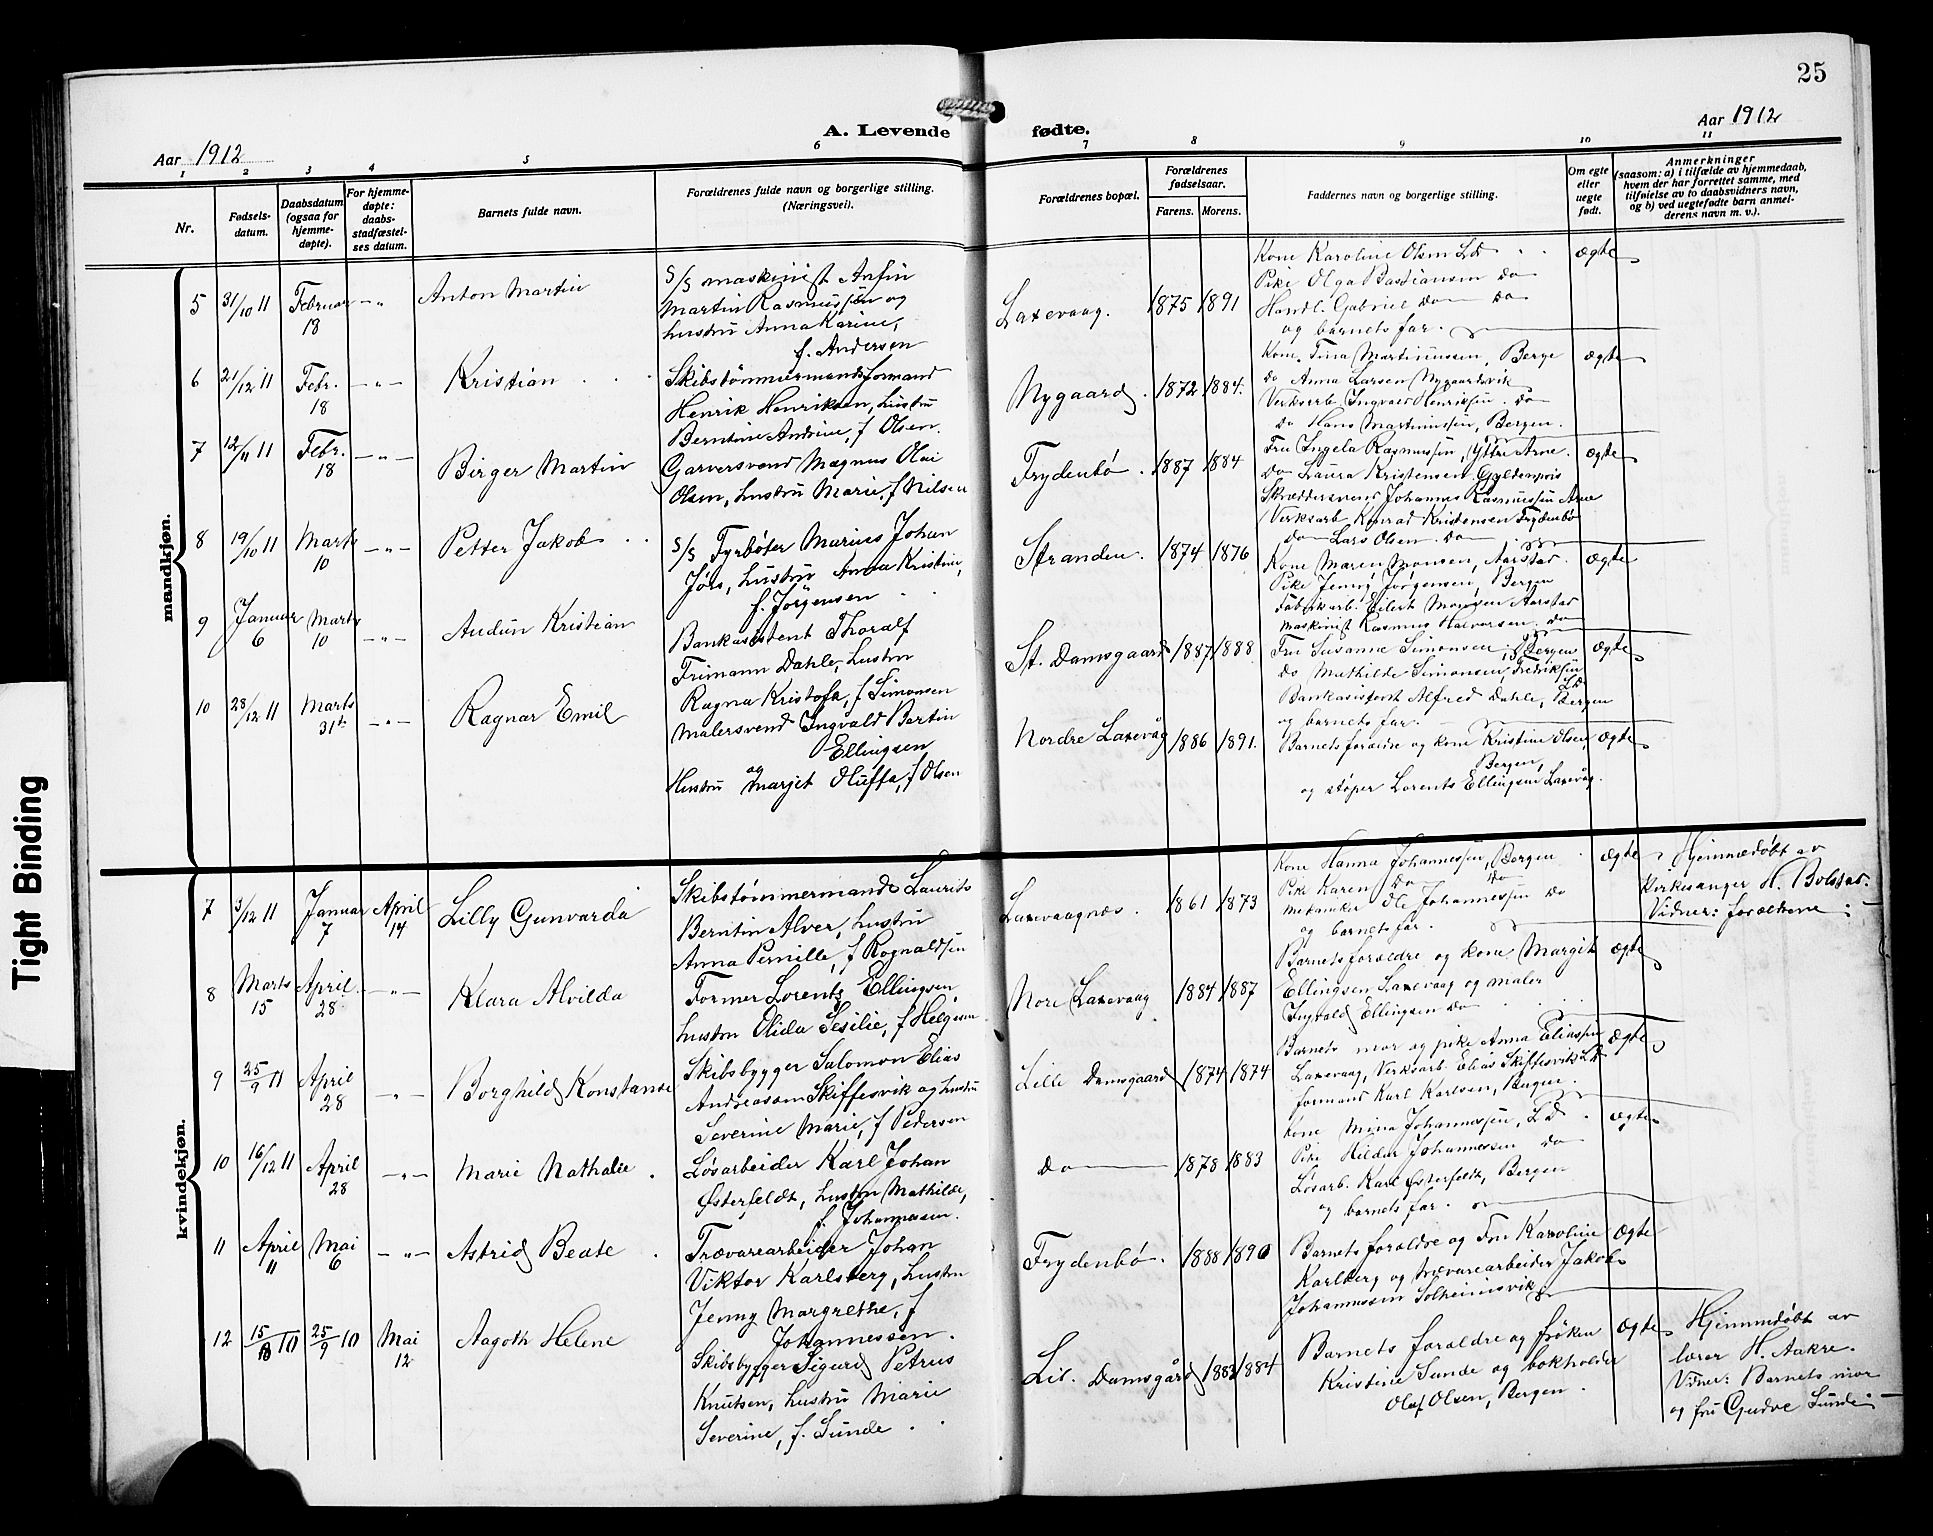 25
Aar 1912
A. Levende fødte.
Aar 1912
1 2 3 4 5 6 7 8 9 10 11
Nr.
Fødsels-
datum.
Daabsdatum
(ogsaa for
hjemme-
døpte).
For hjemme-
døpte:
daabs-
stadfæstel-
ses datum.
Barnets fulde navn.
Forældrenes fulde navn og borgerlige stilling.
(Næringsvei).
Forældrenes bopæl.
Forældrenes
fødselsaar.
Farens. Morens.
Faddernes navn og borgerlige stilling.
Om egte
eller
uegte
født.
Anmerkninger
(saasom: a) i tilfælde av hjemmedaab,
hvem der har forrettet samme, med
tilføielse av to daabsvidners navn,
og b) ved uegtefødte barn anmel-
derens navn m. v.).
mandkjøn.
5 31/10 11 Februar 18 -"- Anton Martin
S/S maskinist Anfin
Martin Rasmussen og
hustru Anna Karine,
f. Andersen
Laxevaag. 1875 1891
Kone Karoline Olsen Ld
Pike Olga Bastiansen do
Handl. Gabriel do do
og barnets far.
ægte
6 21/12 11 Febr. 18 -"- Kristian
Skibstømmermandsformand
Henrik Henriksen, hustru
Berntine Andrine, f Olsen.
Nygaard. 1872 1884.
Kone Tina Martinussen, Berge
do Anna Larsen Nygaardsvik
Verksarb. Ingvald Henriksen. do
do Hans Martinussen, Bergen.
ægte
7 12/11 11 Febr. 18 -"- Birger Martin
Garversvend Magnus Olai
Olsen, hustru Marie, f Nilsen
Frydenbø. 1887 1884
Fru Ingela Rasmussen, Ytre Arne.
do Laura Kristensen Gyldenpris
Skræddersvend Johannes Rasmussen Arne
Verksarb. Konrad Kristensen Frydenbø
do Lars Olsen. do
ægte
8 19/10 11 Marts 10 -"- Petter Jakob
S/S Fyrbøter Marius Johan
Jørs, hustru Anna Kristine,
f. Jørgensen
Stranden. 1874 1876
Kone Maren Monsen, Aarstad
Pike Jenny Jørgensen, Bergen
Fabrikarb. Eilert Monsen Aarstad
Maskinist Rasmus Halvorsen. do
ægte
9 Januar 6 Marts 10 -"- Audun Kristian
Bankasistent Thoralf
Frimann Dahle, hustru
Ragna Kristofa, f Simonsen
St. Damsgaard 1887 1888
Fru Susanne Simonsen, Bergen
do Mathilde Simonsen, Fredriksen
Ld
Bankasistent Alfred Dahle, Bergen
og barnets far.
ægte
10 28/12 11 Marts 31te -"- Ragnar Emil
Malersvend Ingvald Bertin
Ellingsen
og
Hustru Marjet Oluffa, f Olsen
Nordre Laxevåg 1886 1891.
Barnets forældre og kone Kristine Olsen,
Bergen,
og støper Lorents Ellingsen Laxevåg.
ægte
kvindekjøn.
7 3/12 11 Januar 7 April 14 Lilly Gunvarda
Skibstømmermand Laurits
Berntin Alver, hustru
Anna Pernille, f Rognaldsen
Laxevaagnæs. 1861 1873
Kone Hanna Johannessen, Bergen
Pike Karen do do
Mekaniker Ole Johannessen do
og barnets far.
ægte
Hjemmedøbt av
Kirkesanger H. Bolstad.
Vidner: forældrene
8 Marts 15 April 28 -"- Klara Alvilda
Former Lorentz Ellingsen
hustru Olida Sesilie, f Helgesen
Nore Laxevaag 1884 1887
Barnets forældre og kone Margit
Ellingsen Laxevaag og maler
Ingvald Ellingsen do
ægte
9 25/9 11 April 28 -"- Borghild Konstance
Skibsbygger Salomon Elias
Andreassen Skiffesvik og hustru
Severine Marie, f Pedersen
Lille Damsgaard 1874 1874
Barnets mor og pike Anna Eliassen
Laxevaag, Verksarb. Elias Skiffesvik Ld
formand Karl Karlsen, Bergen.
ægte
10 16/12 11 April 28 -"- Marie Nathalie
Løsarbeider Karl Johan
Østerfeldt, hustru Mathilde,
f. Johannessen.
do 1878 1883
Kone Mina Johannessen, Ld
Pike Hildur Johannessen do
Løsarb. Karl Østerfeldt, Bergen
og barnets far.
ægte
11 April 11 Mai 6 -"- Astrid Beate
Trævarearbeider Johan
Viktor Karlsberg, hustru
Jenny Margrethe, f
Johannessen.
Frydenbø. 1888 1890
Barnets forældre og Fru Karoline
Karlberg og trævarearbeider Jakob
Johannessen Solheimsvik
ægte
12 15/8 10 25/9 10 Mai 12 Aagoth Helene
Skibsbygger Sigurd Petrus
Knutsen, hustru Marie
Severine, f. Sunde
Lil. Damsgård 1883 1884
Barnets forældre og frøken
Kristine Sunde og bokholder
Olaf Olsen, Bergen.
ægte
Hjemmedøbt av
lærer H. Aakre.
Vidner: Barnets mor
og fru Gudve Sunde
Tight Binding